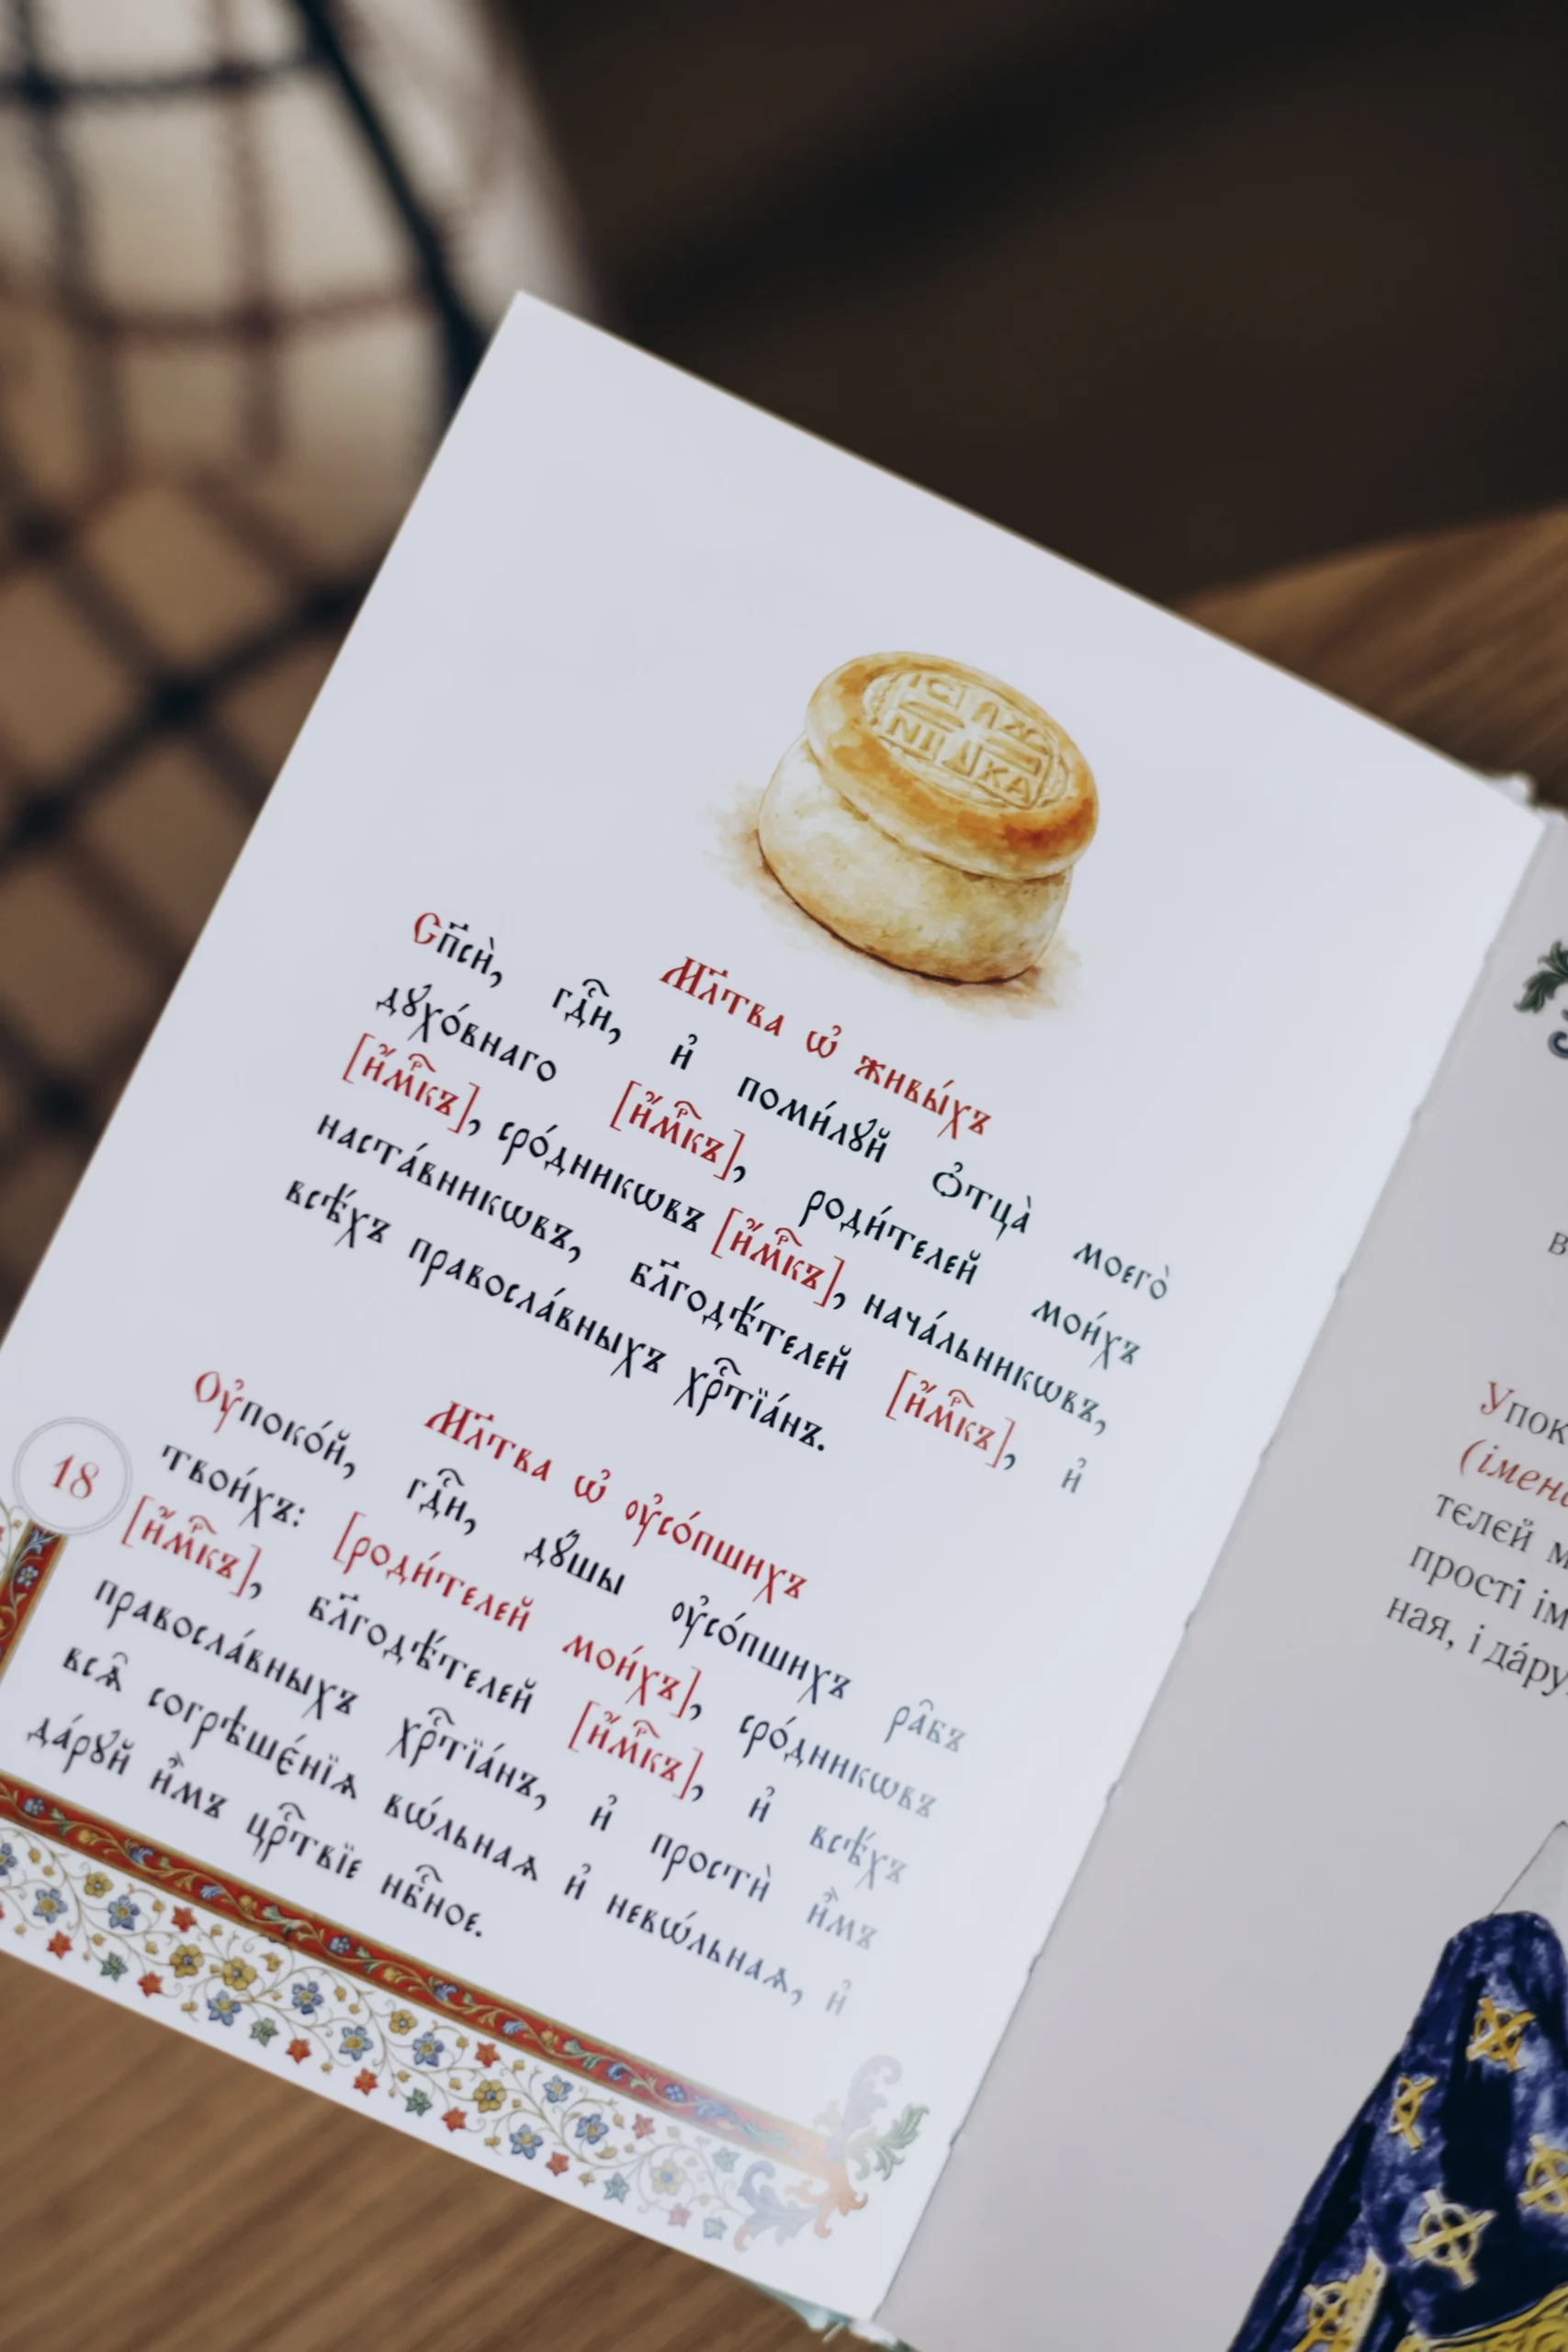 С҃ І҃ Х҃
NI KA
Мл҃тва ѡ҆ живы́хъ
Сп҃сѝ, гдⷭ҇и, и҆ поми́лꙋй ѻ҆тца̀ моего̀
дꙋхо́внаго [и҆́мкⷬ҇ъ], роди́телей мои́хъ
[и҆́мкⷬ҇ъ], сро́дникѡвъ [и҆́мкⷬ҇ъ], нача́льникѡвъ,
наста́вникѡвъ, бл҃годѣ́телей [и҆́мкⷬ҇ъ], и҆
всѣ́хъ правосла́вныхъ хрⷭ҇тїа́нъ.
Мл҃тва ѡ҆ ᲂу҆со́пшихъ
Оу҆поко́й, гдⷭ҇и, дꙋ́шы ᲂу҆со́пшихъ ра̑бъ
твои́хъ: [роди́телей мои́хъ], сро́дникѡвъ
[и҆́мкⷬ҇ъ], бл҃годѣ́телей [и҆́мкⷬ҇ъ], и҆ всѣ́хъ
правосла́вныхъ хрⷭ҇тїа́нъ, и҆ простѝ и҆̀мъ
всѧ̑ согрѣшє́нїѧ вѡ́льнаѧ и҆ невѡ́льнаѧ, и҆
да́рꙋй и҆̀мъ црⷭ҇твїе нбⷭ҇ное.
18
Упок
(імена
телей м
прості ім
ная, і да́ру